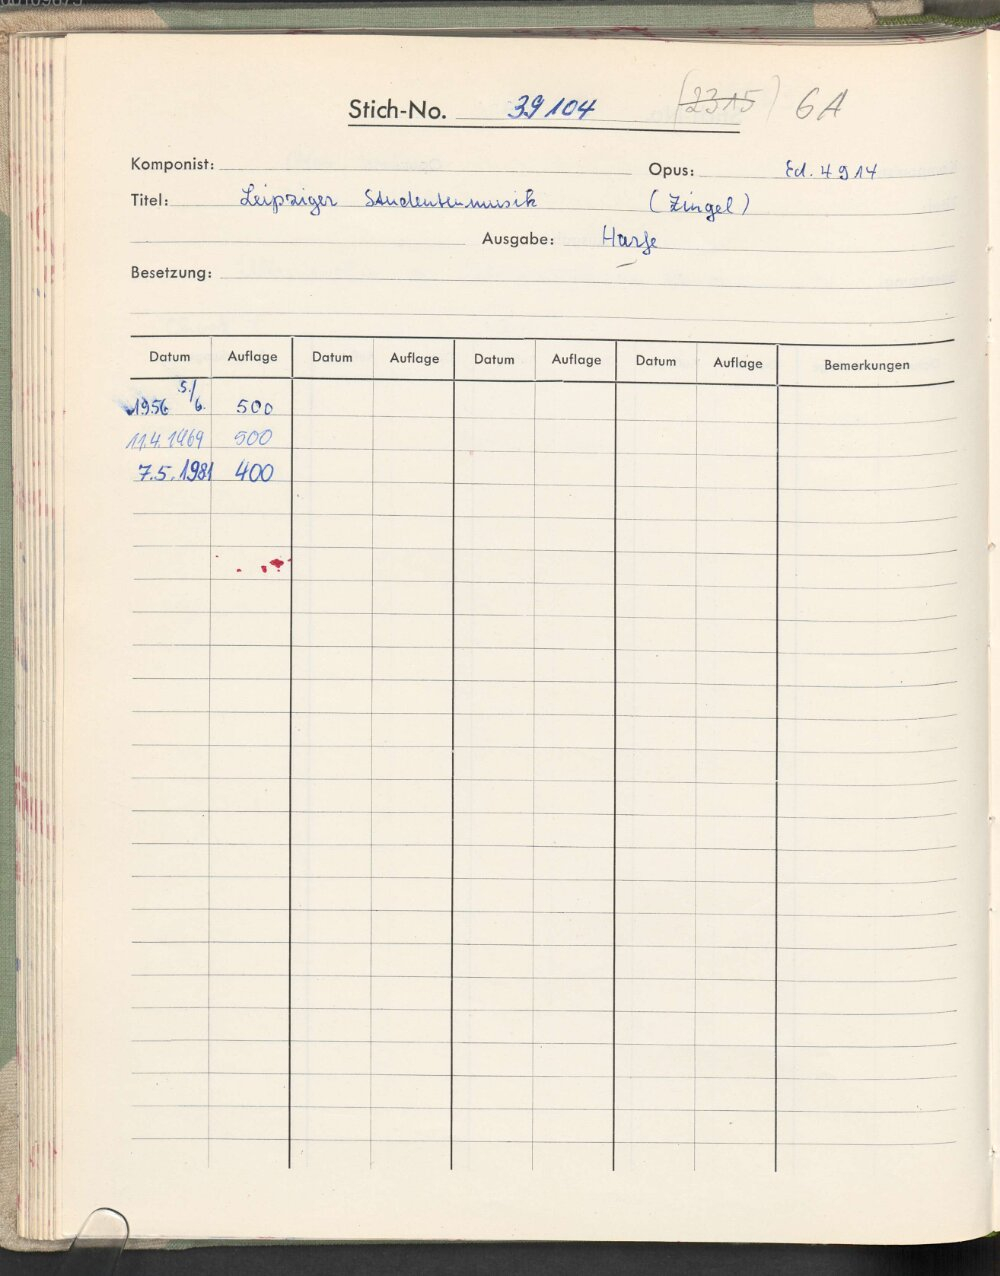 Stich-No. 39104 (2315) 6A
Komponist: Opus: Ed. 4914
Titel: Leipziger Studentenmusik (Zingel)
Ausgabe: Harfe
Besetzung:
Datum Auflage Datum Auflage Datum Auflage Datum Auflage Bemerkungen
1956 5./6. 500
11.4.1969 500
7.5.1981 400